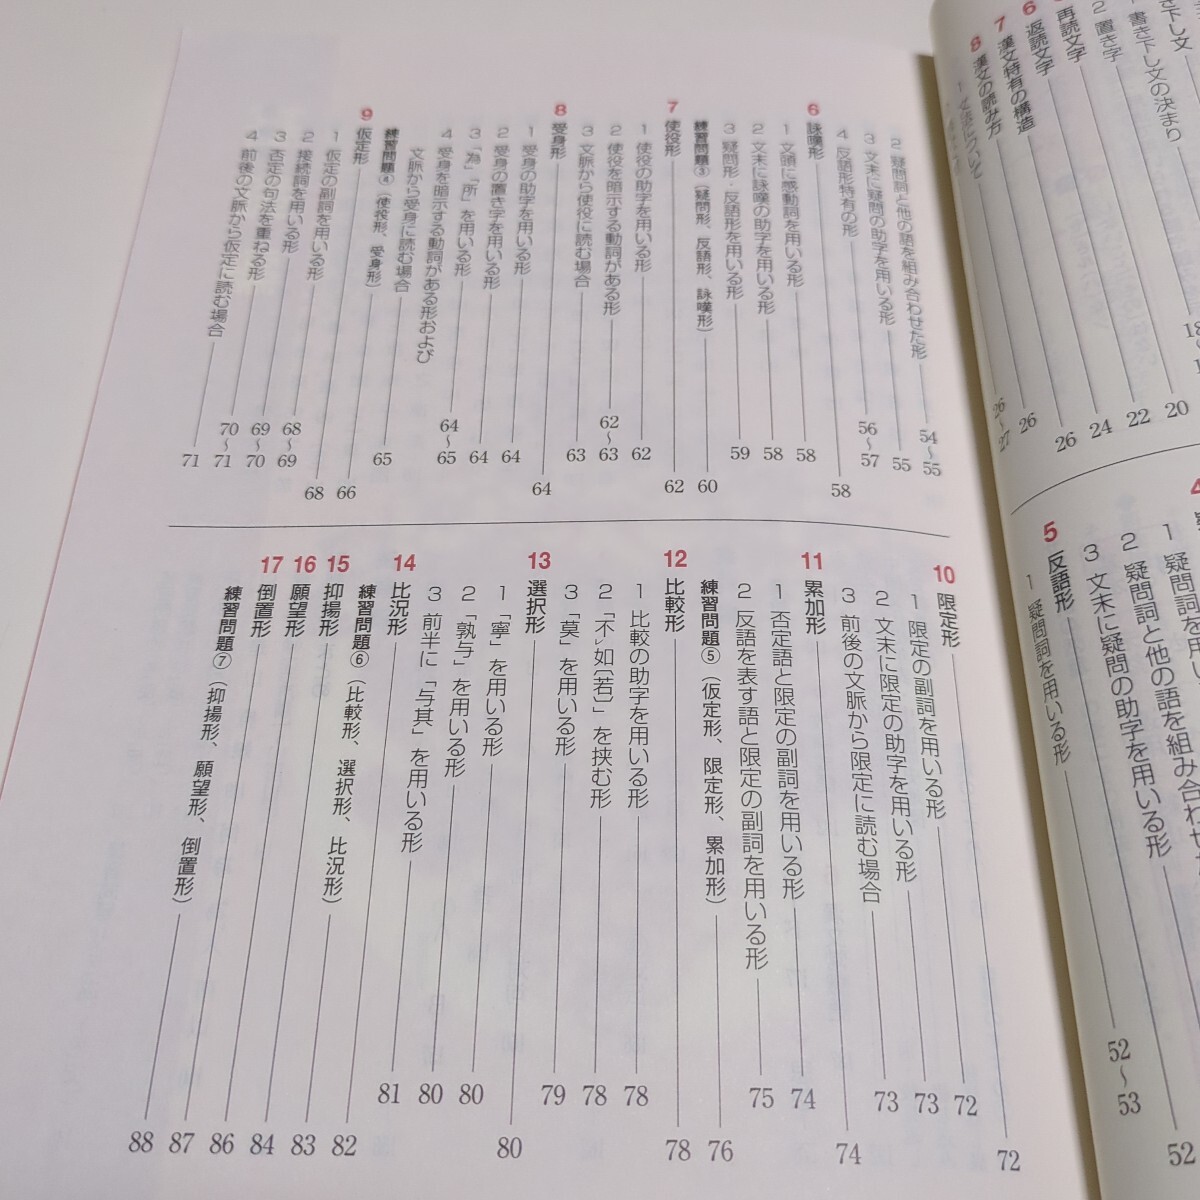 書き下し文
1 書き下し文の決まり 20
2 置き字 22
再読文字 24
6 返読文字 26
7 漢文特有の構造 26
8 漢文の読み方 26〜27
5 反語形 52
1 疑問詞を用いる形 52〜53
2 疑問詞と他の語を組み合わせた形 54〜55
3 文末に疑問の助字を用いる形 55
4 反語形特有の形 56〜57
6 詠嘆形 58
1 文頭に感動詞を用いる形 58
2 文末に詠嘆の助字を用いる形 58
3 疑問形・反語形を用いる形 59
練習問題③（疑問形、反語形、詠嘆形） 60
7 使役形 62
1 使役の助字を用いる形 62
2 使役を暗示する動詞がある形 62〜63
3 文脈から使役に読む場合 63
8 受身形 64
1 受身の助字を用いる形 64
2 受身の置き字を用いる形 64
3 「為」「所」を用いる形 64〜65
4 受身を暗示する動詞がある形および
文脈から受身に読む場合 65
練習問題④（使役形、受身形） 66
9 仮定形 68
1 仮定の副詞を用いる形 68〜69
2 接続詞を用いる形 69〜70
3 否定の句法を重ねる形 70〜71
4 前後の文脈から仮定に読む場合 71
10 限定形 72
1 限定の副詞を用いる形 72
2 文末に限定の助字を用いる形 73
3 前後の文脈から限定に読む場合 73
11 累加形 74
1 否定語と限定の副詞を用いる形 74
2 反語を表す語と限定の副詞を用いる形 75
練習問題⑤（仮定形、限定形、累加形） 76
12 比較形 78
1 比較の助字を用いる形 78
2 「不レ如〔若〕」を挟む形 78
3 「莫」を用いる形 79
13 選択形 80
1 「寧」を用いる形 80
2 「孰与」を用いる形 80
3 前半に「与其」を用いる形 81
14 比況形 82
練習問題⑥（比較形、選択形、比況形） 83
15 抑揚形 84
16 願望形 86
17 倒置形 87
練習問題⑦（抑揚形、願望形、倒置形） 88